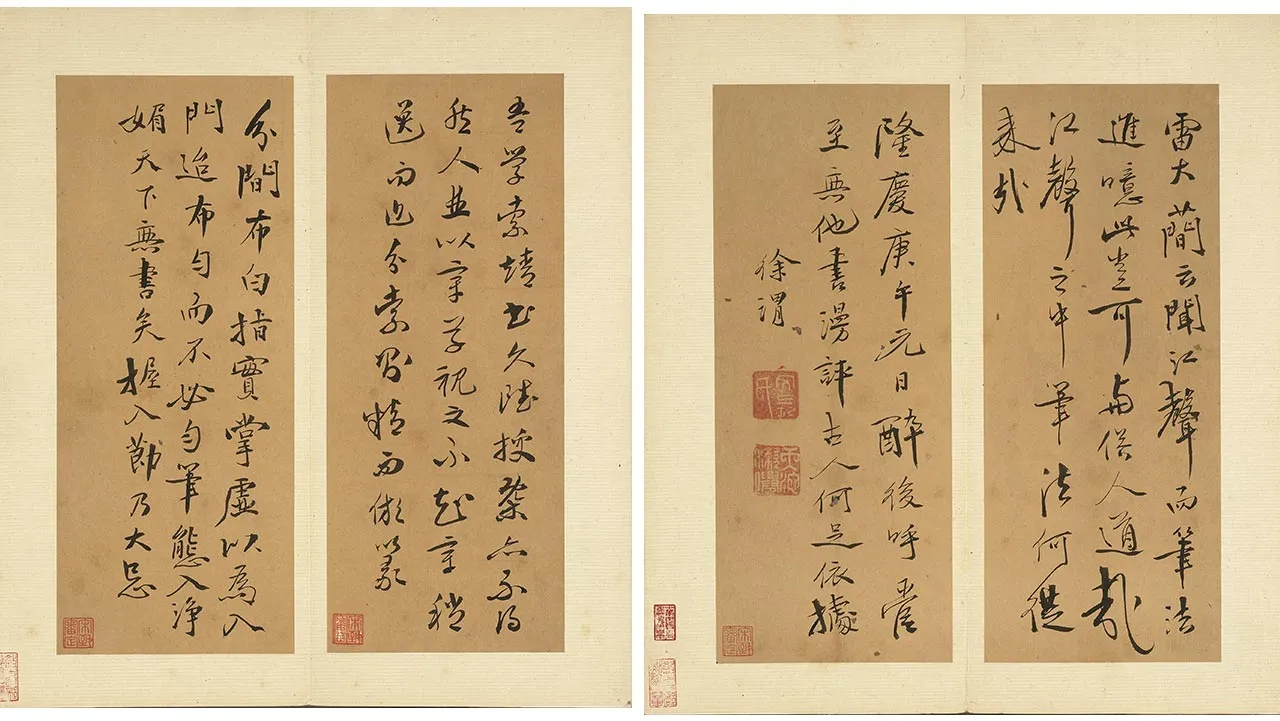 吾學索靖書久雖梗槩亦不得
然人並以章草視之不知章稍
逸而近分索則而倣篆
分間布白指實掌虛以為入
門迨布勻而不必勻筆態入淨
媚天下無書矣握入節乃大忌
雷大簡云聞江聲而筆法
進噫此豈可與俗人道哉
江聲之中筆法何從
來哉
隆慶庚午元日醉後呼管
至無他書漫評古人何足依據
徐渭